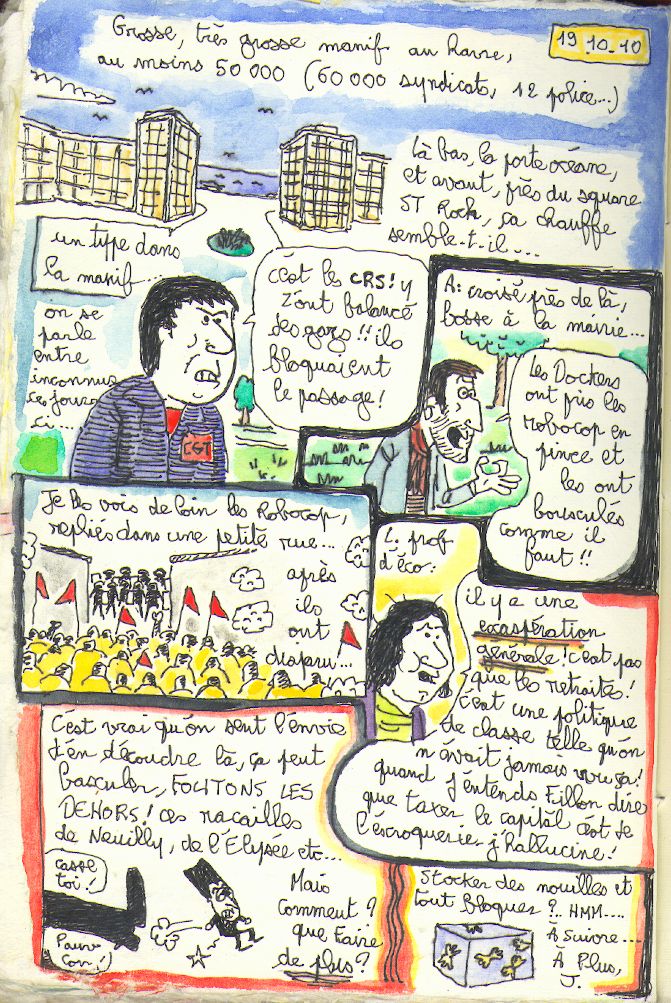 Grosse, très grosse manif au havre,
au moins 50 000 (60 000 syndicats, 12 police...)
19_10_10
Là bas, la porte océane,
et avant, près du square
ST Rock, ça chauffe
semble-t-il...
un type dans
la manif...
on se
parle
entre
inconnus
ces jours
ci...
c'est les CRS! y
z'ont balancé
des gazs!! ils
bloquaient
le passage!
CGT
A: croisé près de là,
bosse à la mairie...
Les Dockers
ont pris les
robocop en
pince et
les ont
bousculés
comme il
faut!!
Je les vois de loin les Robocop,
repliés dans une petite rue...
après
ils
ont
disparu...
L. prof
d'éco:
il y a une
exaspération
générale! c'est pas
que les retraites!
C'est une politique
de classe telle qu'on
n'avait jamais vu ça!
quand j'entends Fillon dire
que taxer le capital c'est de
l'escroquerie j'hallucine!
C'est vrai qu'on sent l'envie
d'en découdre là, ça peut
basculer, FOUTONS LES
DEHORS! ces racailles
de Neuilly, de l'Elysée etc...
casse
toi!
Pauv
con!
Mais
comment?
que faire
de plus?
Stocker des nouilles et
tout bloquer?.. HMM....
À suivre....
À Plus,
J.